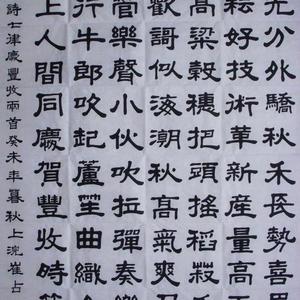 光分外秋禾長勢喜
耘好技術革新產量高
高粱穀穗把頭搖稻菽
歡歌似海潮秋高氣爽
管樂聲小伙吹拉彈奏樂
行牛郎吹起蘆笙曲織
上人間同慶賀豐收時
詩七律慶豐收兩首癸未年暮秋上浣崔占